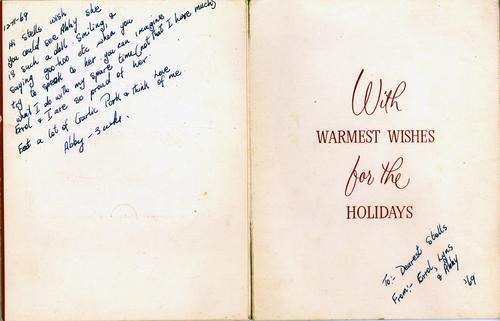 12-11-69
Hi Stells wish she
you could see Abby she
is such a doll. Smiling, &
saying goo-hoo etc when you
try to speak to her. you can imagine
what I do with my spare time (not that I have much)
Errol & I are so proud of her
Eat a lot of Garlic Pork & think
of me.
Abby - 3 wks.
With
WARMEST WISHES
for the
HOLIDAYS
To:- Dearest Stells
From:- Errol, Lyns
& Abby
'69